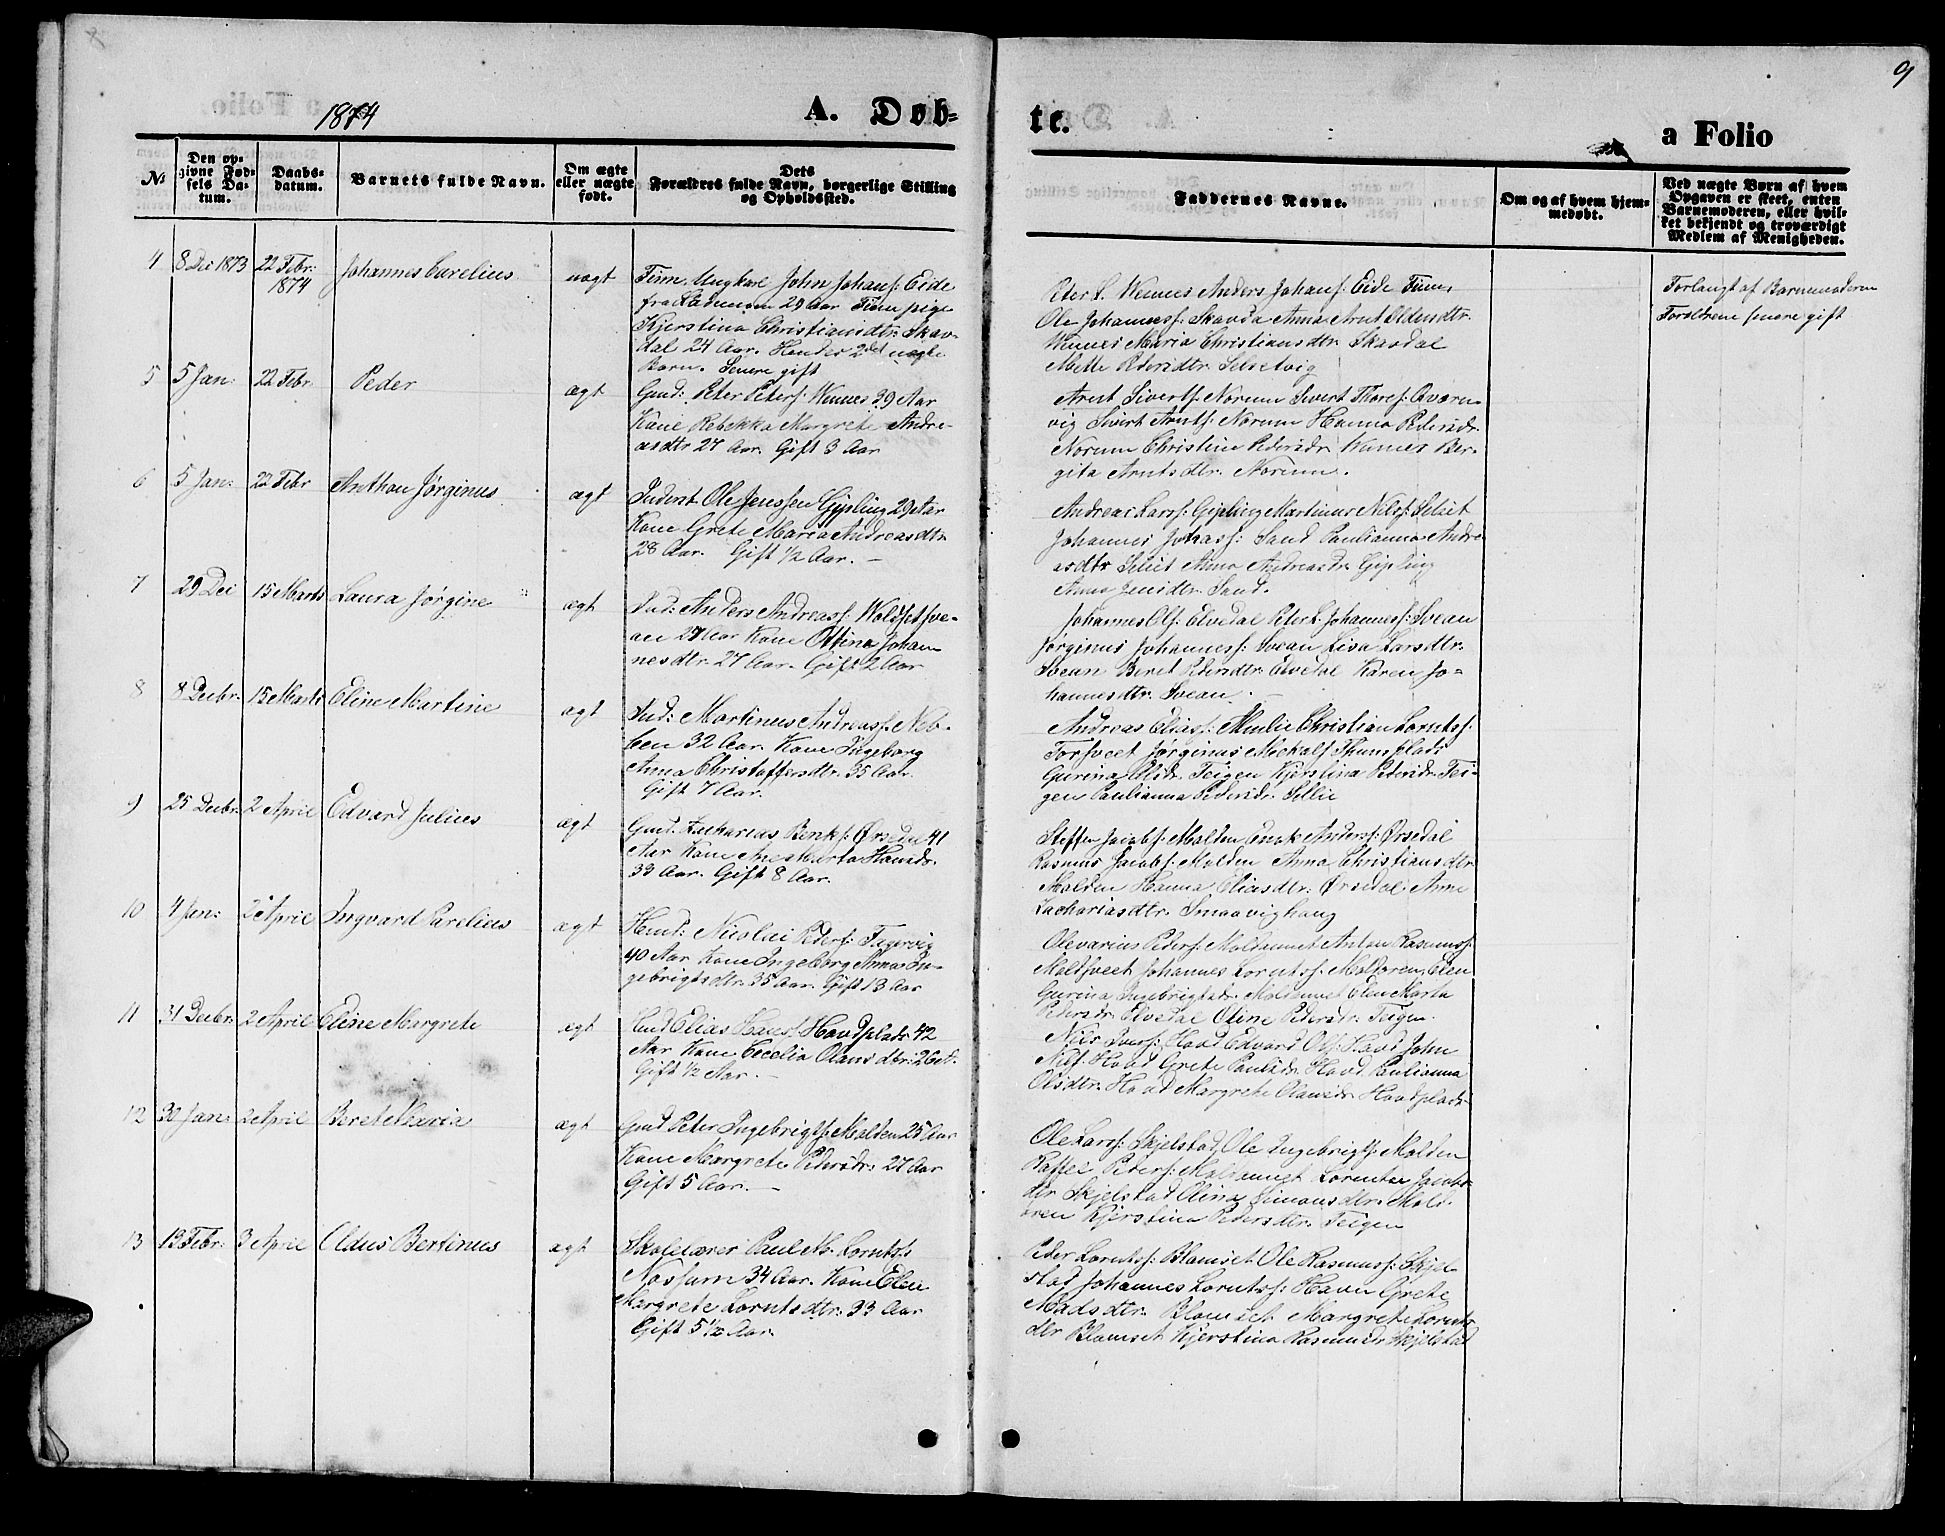 1874
A. Døb-
te.
a Folio
9
No
Den op-
givne Fød-
sels Da-
tum.
Daabs-
datum.
Barnets fulde Navn.
Om ægte
eller uægte
født.
Dets
Forældres fulde Navn, borgerlige Stilling
og Opholdssted.
Faddernes Navne.
Om og af hvem hjem-
medøbt.
Ved uægte Børn af hvem
Opgaven er skeet, enten
Barnemoderen, eller hvil-
ket bekjendt og troværdigt
Medlem af Menigheden.
4 8 Dec 1873 22 Febr: 1874 Johannes Carelius uægt
Finn. Ungkarl John Johans: Eide
fra 29 Aar Finn pige
Kjerstina Christiansdtr: Skav-
dal 24 Aar. Hendes 2det uægte
Barn. Senere gift
Peter L. Wennes Anders Johans: Eide Finn,
Ole Johanness: Skavda Anna Arnt Oldensdtr.
Wennes Maria Christiansdtr. Skavdal
Mette Pedersdtr. Selsetvig
Forlangt af Barnemoderen
Forældrene senere gift
5 5 Jan: 22 Febr. Peder ægt
Gmd: Peter Peters: Wennes 29 Aar
Kone Rebekka Margrete Andre-
asdtr 27 Aar. Gift 3 Aar
Arnt Siverts: Norum Sivert Thores: Qværn-
vig Sivert Arnts: Norum Hanna Pedersdr.
Norum Christine Pedersdr Wennes Ber-
gita Arntsdtr. Norum.
6 5 Jan: 22 Febr Anthon Jørginus ægt
Inderst Ole Jenssen Gipling 29 Aar
Kone Grete Maria Andreasdtr
28 Aar. Gift 1/2 Aar. —
Andreas Larss: Gipling Martinus Nils: Seliet
Johannes Johass: Sand Paulianna Andre
asdtr Seliet Anna Andreasdr Gipling
Anna Jensdtr. Sand.
7 29 Dec 15 Marts Laura Jørgine ægt
Ind: Anders Andreass: Woldset sve-
an 27 Aar Kone Ottina Johan-
nesdtr. 27 Aar. Gift 2 Aar
Johannes Ols: Elvedal Peter L. Johanness: Svean
Jørginus Johanness: Svean Lisa Larsdtr.
Svean Beret Pedersdtr. Elvedal Karen Jo-
hannesdtr. Svean.
8 8 Decbr. 15 Marts Eline Martine ægt
Ind: Martinus Andreass: Neb-
ben 32 Aar. Kone Ingeborg
Anna Christoffersdtr. 35 Aar.
Gift 7 Aar.
Andreas Elias: Christian Lorntss:
Torsveet Jørginus Mickals:
Gurina Olsdr. Teigen Kjerstina Pedersdr. Tei-
gen Paulianna Pedersdr. Sellie
9 25 Decbr. 2 April Edvard Julius ægt
Gmd. Zacharias Benks: Ørsedal 41
Aar Kone Ane Marta Hansdr.
33 Aar. Gift 8 Aar.
Steffen Jacobs: Malden Anderss: Ørsedal
Rasmus Jacobs: Malden Anna Christiansdtr
Malden Hanna Eliasdtr. Ørsedal Anne
Zachariasdtr. Smaavighaug
10 4 Jan: 2 April Ingvard Parelius ægt
Hmd: Nicolai Peders: Fagervig
40 Aar Kone Ingeborg Anna In-
gebrigtsdtr. 35 Aar. Gift 13 Aar
Olevarius Peders: Maldemnet Anton Rasmuss:
Maldsveet Johannes Lorntss: Maldoren, Elen
Gurina Ingebrigtsdr. Maldemnet Elen Marta
Pedersdr. Elvedal Oline Pedersdr. Teigen.
11 31 Decbr. 2 April Eline Margrete ægt
Hmd Elias Hans: Haadplads 42
Aar Kone Cecelia Olausdtr: 26 Aar.
Gift 1/2 Aar. —
Nils Ivers: Haad Edvard Ols: Haad John
Nils: Haad Grete Paulsdr. Haad Paulianna
Olsdtr: Haad Margrete Olausdr. Haadplads
12 30 Jan: 2 April Beret Maria ægt
Gmd Peter Ingebrigts: Malden 25 Aar
Kone Margrete Pedersdr. 27 Aar
Gift 5 Aar. —
Ole Larss: Skjelstad Ole Ingebrigts: Malden
Raffel Peders: Maldemnet Lorntze Jacobs
dtr Skjelstad Olina Simonsdtr. Mald-
oren Kjerstina Pedersdtr. Teigen
13 19 Febr: 3 April Oldus Bertinus ægt
Skolelærer Paul M. Lorntss
Nossum 34 Aar. Kone Elen
Margrete Lorntsdtr: 33 Aar
Gift 5 1/2 Aar.
Peder Lorntss: Blamset Ole Rasmuss: Skjel
stad Johannes Lorntss: Haven Grete
Madsdtr. Blamset Margrete Lornts
dtr Blamset Kjerstina Rasmusdr Skjelstad